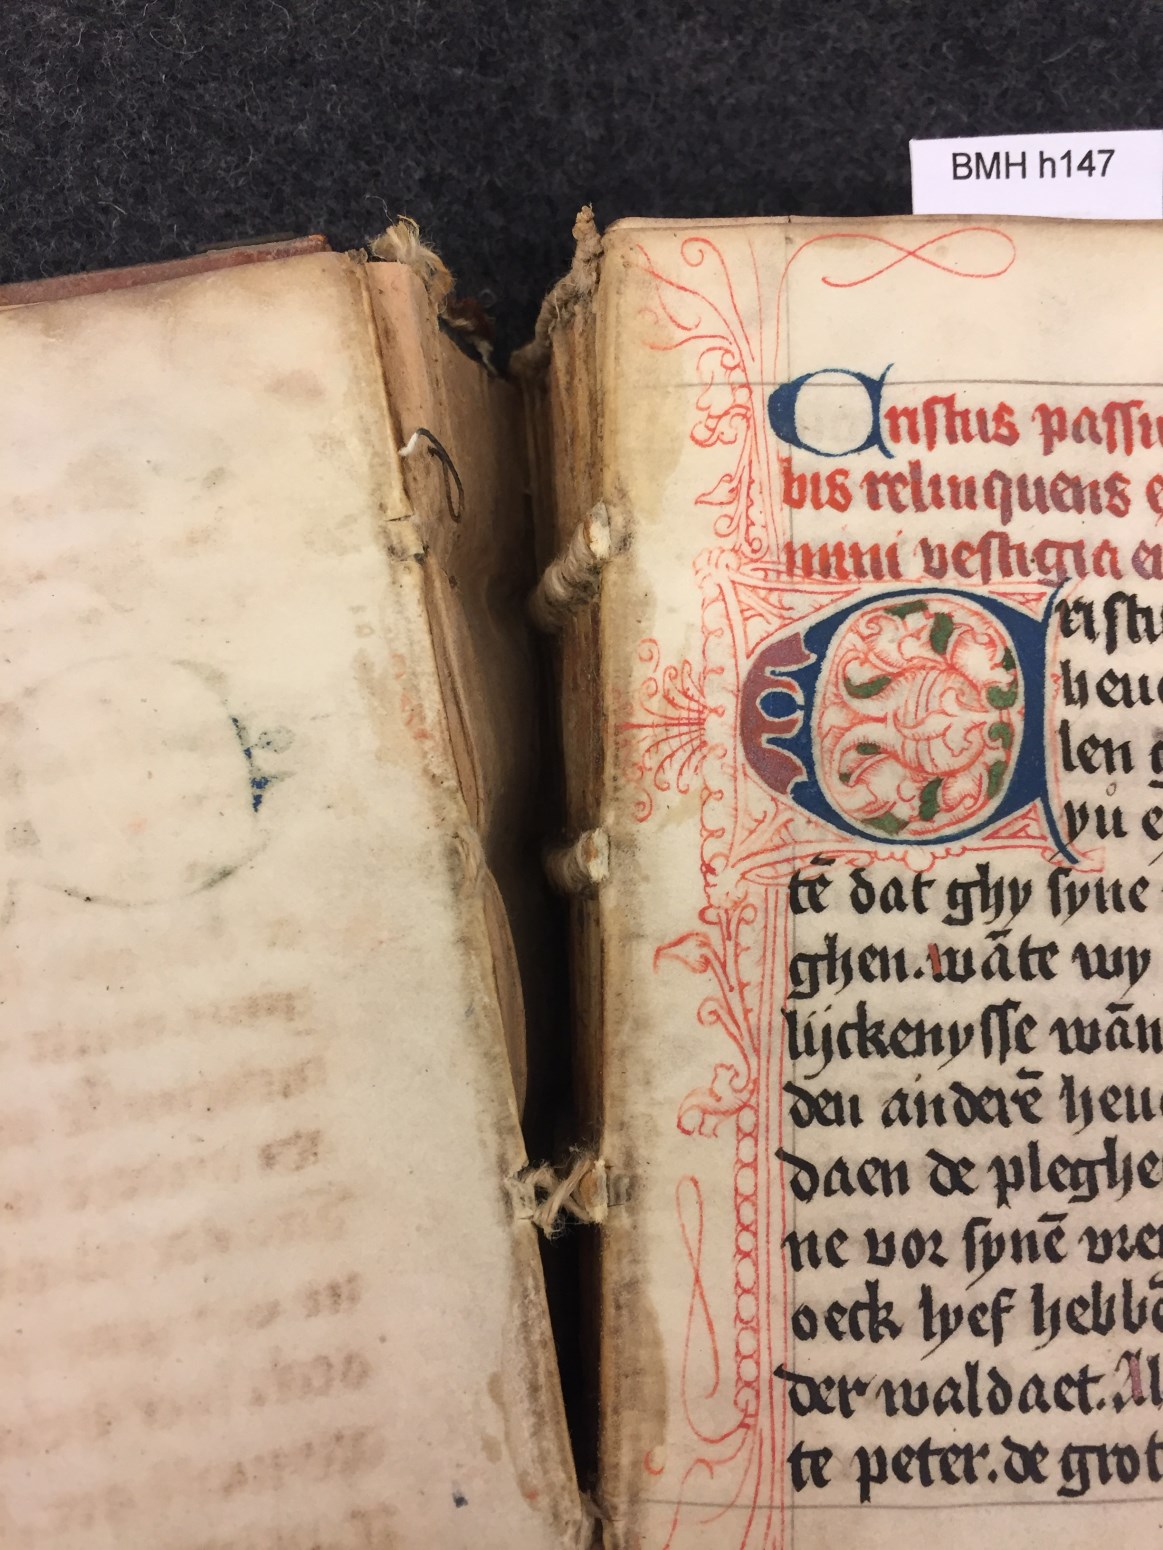 BMH h147
Cristus passu
bis relinquens e
mini vestigia en
Cristu
heue
len g
yů e
tē dat ghy syne
ghen. wāte wy
lijckenysse wān
den anderē heu
daen de pleghe
ne vor synē vren
oeck lyef hebbē
der waldaet. Al
te peter. de grot